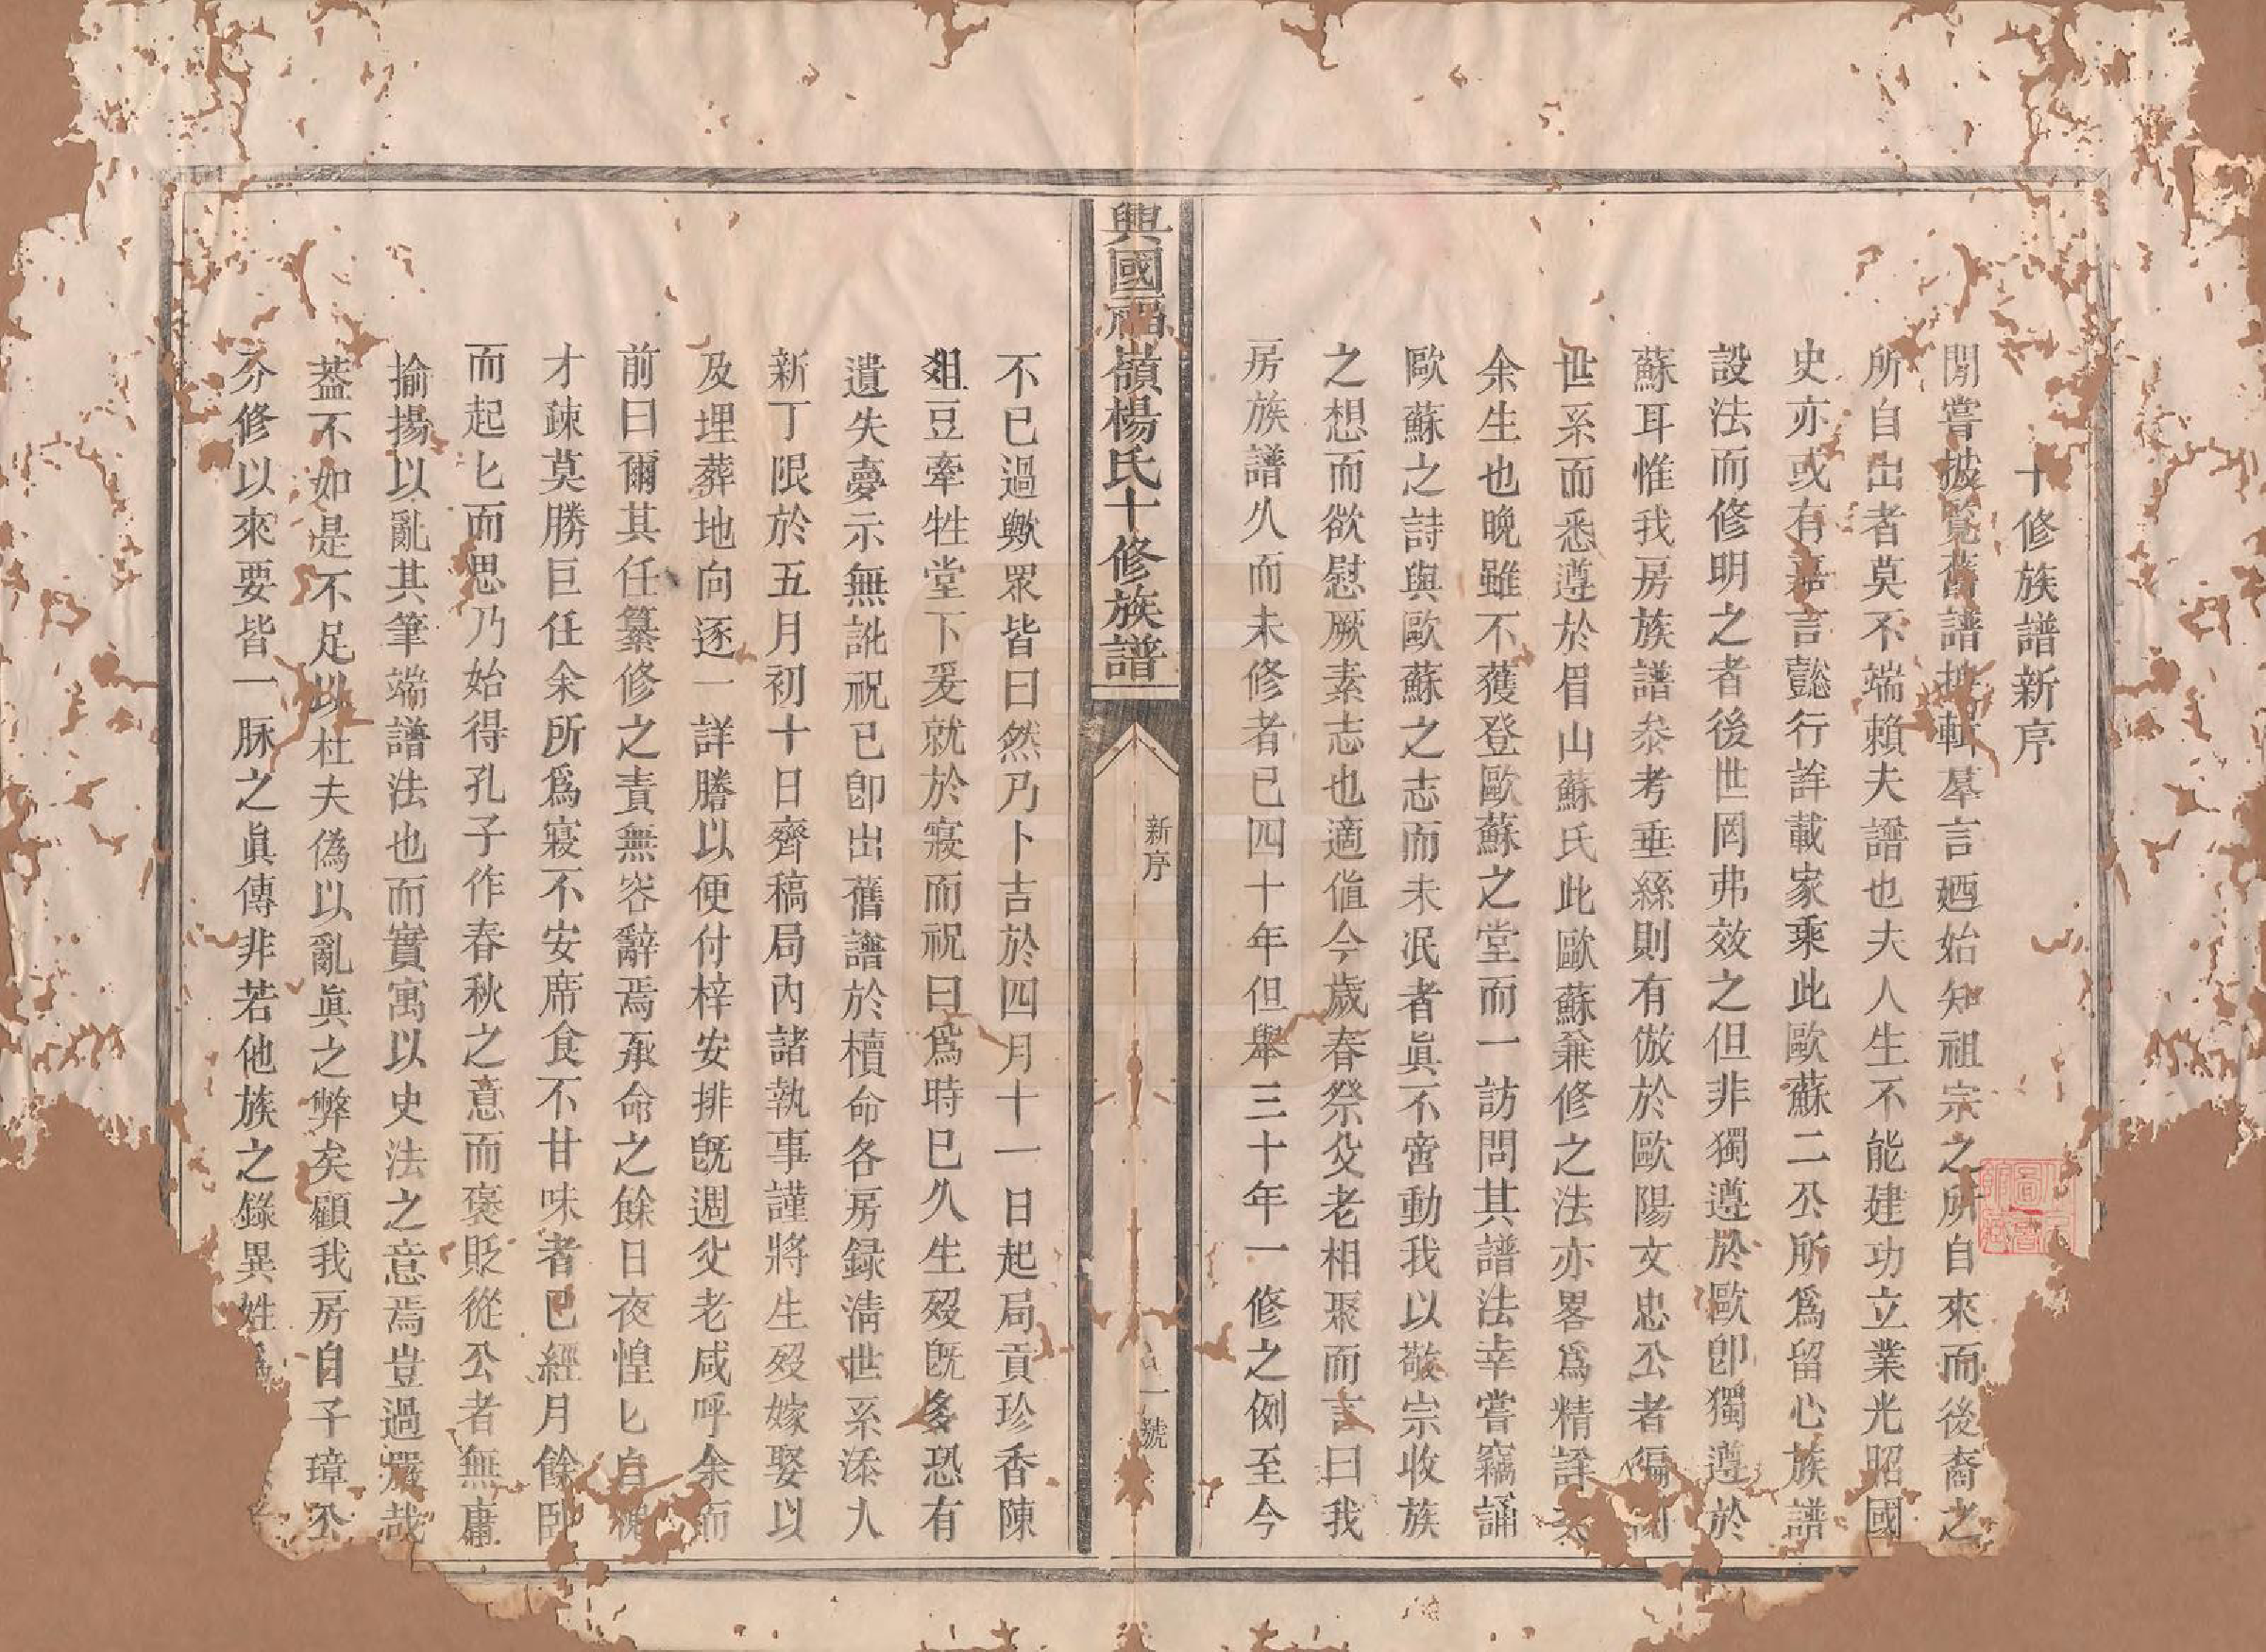 十修族譜新序
閒嘗披覽舊譜輯羣言廼始知祖宗之所自來而後裔之
所自出者莫不端賴夫譜也夫人生不能建功立業光昭國
史亦或有嘉言懿行詳載家乘此歐蘇二公所爲留心族譜
設法而修明之者後世罔弗效之但非獨遵於歐卽獨遵於
蘇耳惟我房族譜叅考垂絲則有倣於歐陽文忠公者編
世系而悉遵於眉山蘇氏此歐蘇兼修之法亦畧爲精詳
余生也晚雖不獲登歐蘇之堂而一訪問其譜法幸嘗竊誦
歐蘇之詩與歐蘇之志而未泯者眞不啻動我以敬宗收族
之想而欲慰厥素志也適值今歲春祭父老相聚而言曰我
房族譜久而未修者已四十年但舉三十年一修之例至今
興國福嶺楊氏十修族譜
新序
一號
不已過歟眾皆曰然乃卜吉於四月十一日起局貢珍香陳
俎豆牽牲堂下爰就於寢而祝曰爲時已久生歿旣多恐有
遺失夢示無訛祝已卽出舊譜於櫝命各房録淸世系添人
新丁限於五月初十日齊稿局內諸執事謹將生歿嫁娶以
及埋葬地向逐一詳謄以便付梓安排旣週父老咸呼余而
前曰爾其任纂修之責無容辭焉承命之餘日夜惶匕自愧
才疎莫勝巨任余所爲寢不安席食不甘味者已經月餘卧
而起匕而思乃始得孔子作春秋之意而褒貶從公者無庸
揄揚以亂其筆端譜法也而實寓以史法之意焉豈過嚴哉
葢不如是不足以杜夫偽以亂眞之弊矣顧我房自子璋公
分修以來要皆一脉之眞傳非若他族之錄異姓爲